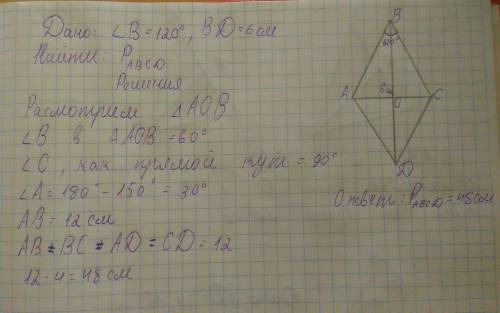 Дано: ∠B = 120°, BD = 6 см
Найти: P_ABCD
Решения
Расмотрим △AOB
∠B в △AOB = 60°
∠O, как прямой кут = 90°
∠A = 180° - 150° = 30°
AB = 12 см
AB = BC = AD = CD = 12
12 · 4 = 48 см
B
120°
A
6см
O
C
D
Ответ: P_ABCD = 48 см